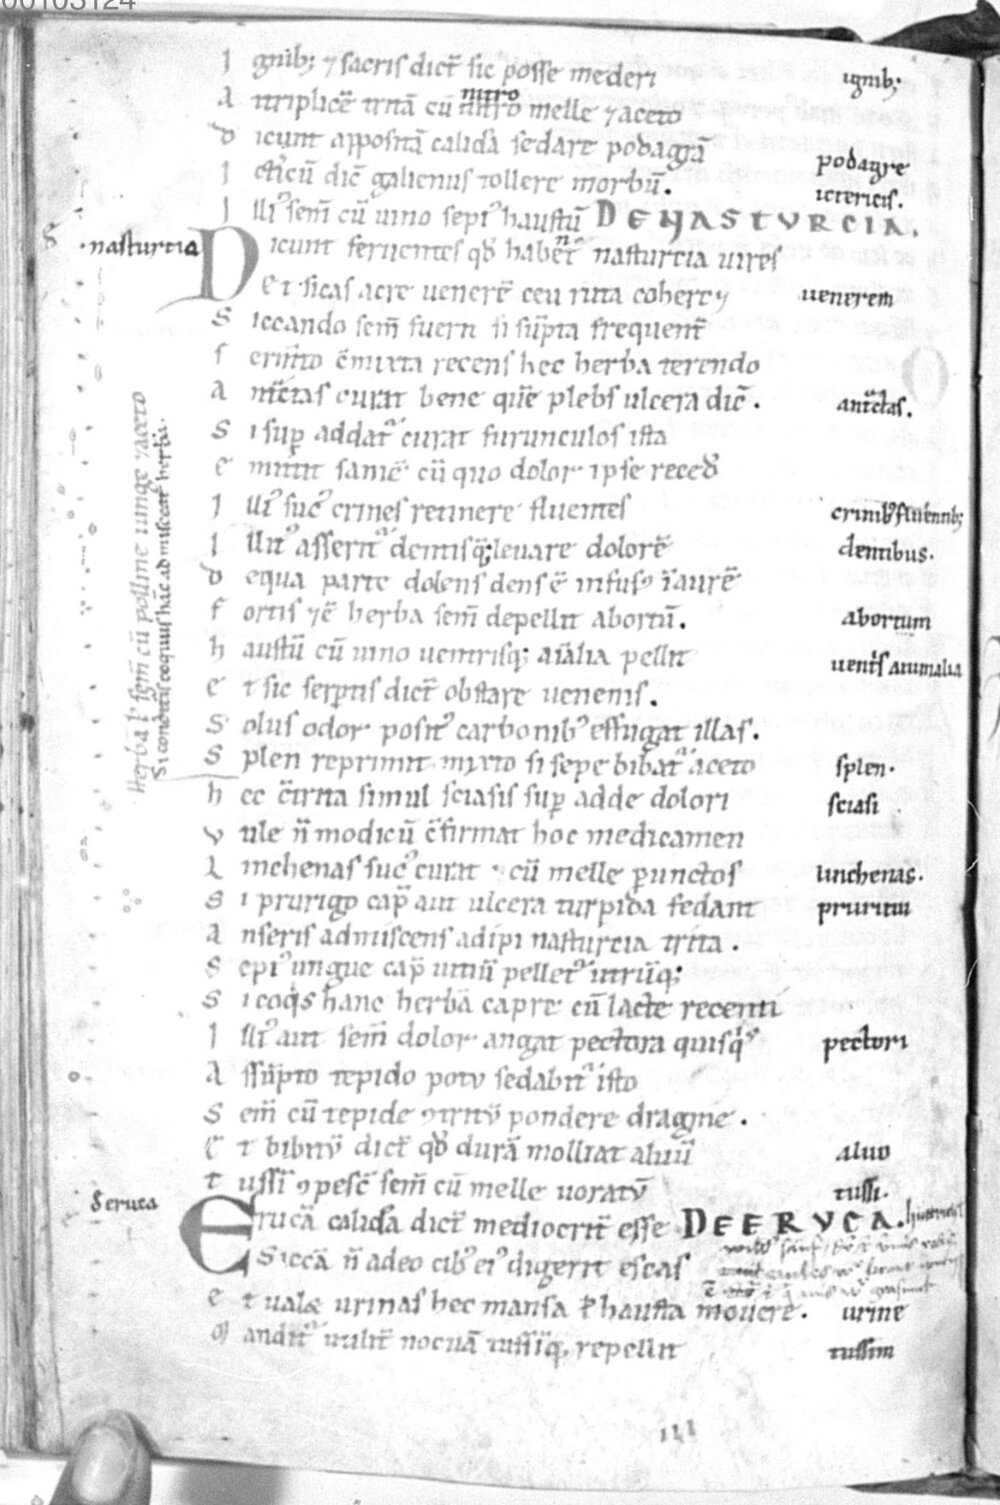 00103124
I gnib; ⁊ sacris dicr̄ sic posse mederi
ignib;
nitro
A triplicē trītā cū nitro melle ⁊ aceto
D icunt appositā calidā sedare podagrā
podagre
I ctericū dic̄ galienus tollere morbū.
ictericis.
I lliꝰ sem̄ cū uino sepiꝰ haustū DE NASTVRCIA.
nasturtia
D icunt feruentes qđ habent nasturcia uires
E t sicas acre uenerē ceu ruta cohercꝫ
uenerem
S iccando sem̄ fuerit si sūpta frequent̄
F erm̄to c̄mixta recens hec herba terendo
A ntc̄tas curat bene quē plebs ulcera dic̄.
antc̄tas.
S i suꝑ addat̉ curat furunculos ista
E mittit saniē cū quo dolor ipse recedit
I lliꝰ sucꝰ crines retinere fluentes
crinibꝰ fluentib;
I llitꝰ asserit̉ dentisq; leuare dolorē
dentibus.
D equa parte dolens dens ē infusꝰ ī aurē
F ortis ⁊ ē herba sem̄ depellit abortū.
abortum
H austū cū uino uentrisq; aīalia pellit
uent̄s animalia
E t sic serptis dict̄ obstare uenenis.
S olus odor positꝰ carbonibꝰ effugat illas.
S plen reprimit mixto si sepe bibat̉ aceto
splen.
H ec c̄trita simul sciasis suꝑ adde dolori
sciasi
V ule n̄ modicū c̄firmat hoc medicamen
L inchenas sucꝰ curat ⁊ cū melle ꝑunctos
linchenas.
S i prurigo cap̄ aut ulcera turpida fedant
pruritui
A nseris admiscens adipi nasturcia trita.
S epiꝰ ungue cap̄ uitiū pellet̉ utrūq;
S i coq̄s hanc herbā capre cū lacte recenti
I lliꝰ aut sem̄ dolor angat pectora quisq̄s
pectori
A ssūpto tepido potu sedabit̉ isto
S em̄ cū tepide ꝯtritū pondere dragme.
E t bibitū dict̄ qđ durā molliat aluū
aluo
T ussi ꝯpesc̄ sem̄ cū melle uoratū
tussi.
Eruca
E rucā calidā dict̄ mediocrit̄ esse DE ERVCA.
Siccā n̄ adeo cibꝰ eiꝰ digerit escas
E t ualde urinas hec mansa ł hausta mouere.
urine
M andit̉ uulit̄ nocuā tussīq; repellit
tussim
Herbā ł sem̄ cū polline iunge ⁊ aceto
Si conditis coquis hāc admisceat̉ herbā.